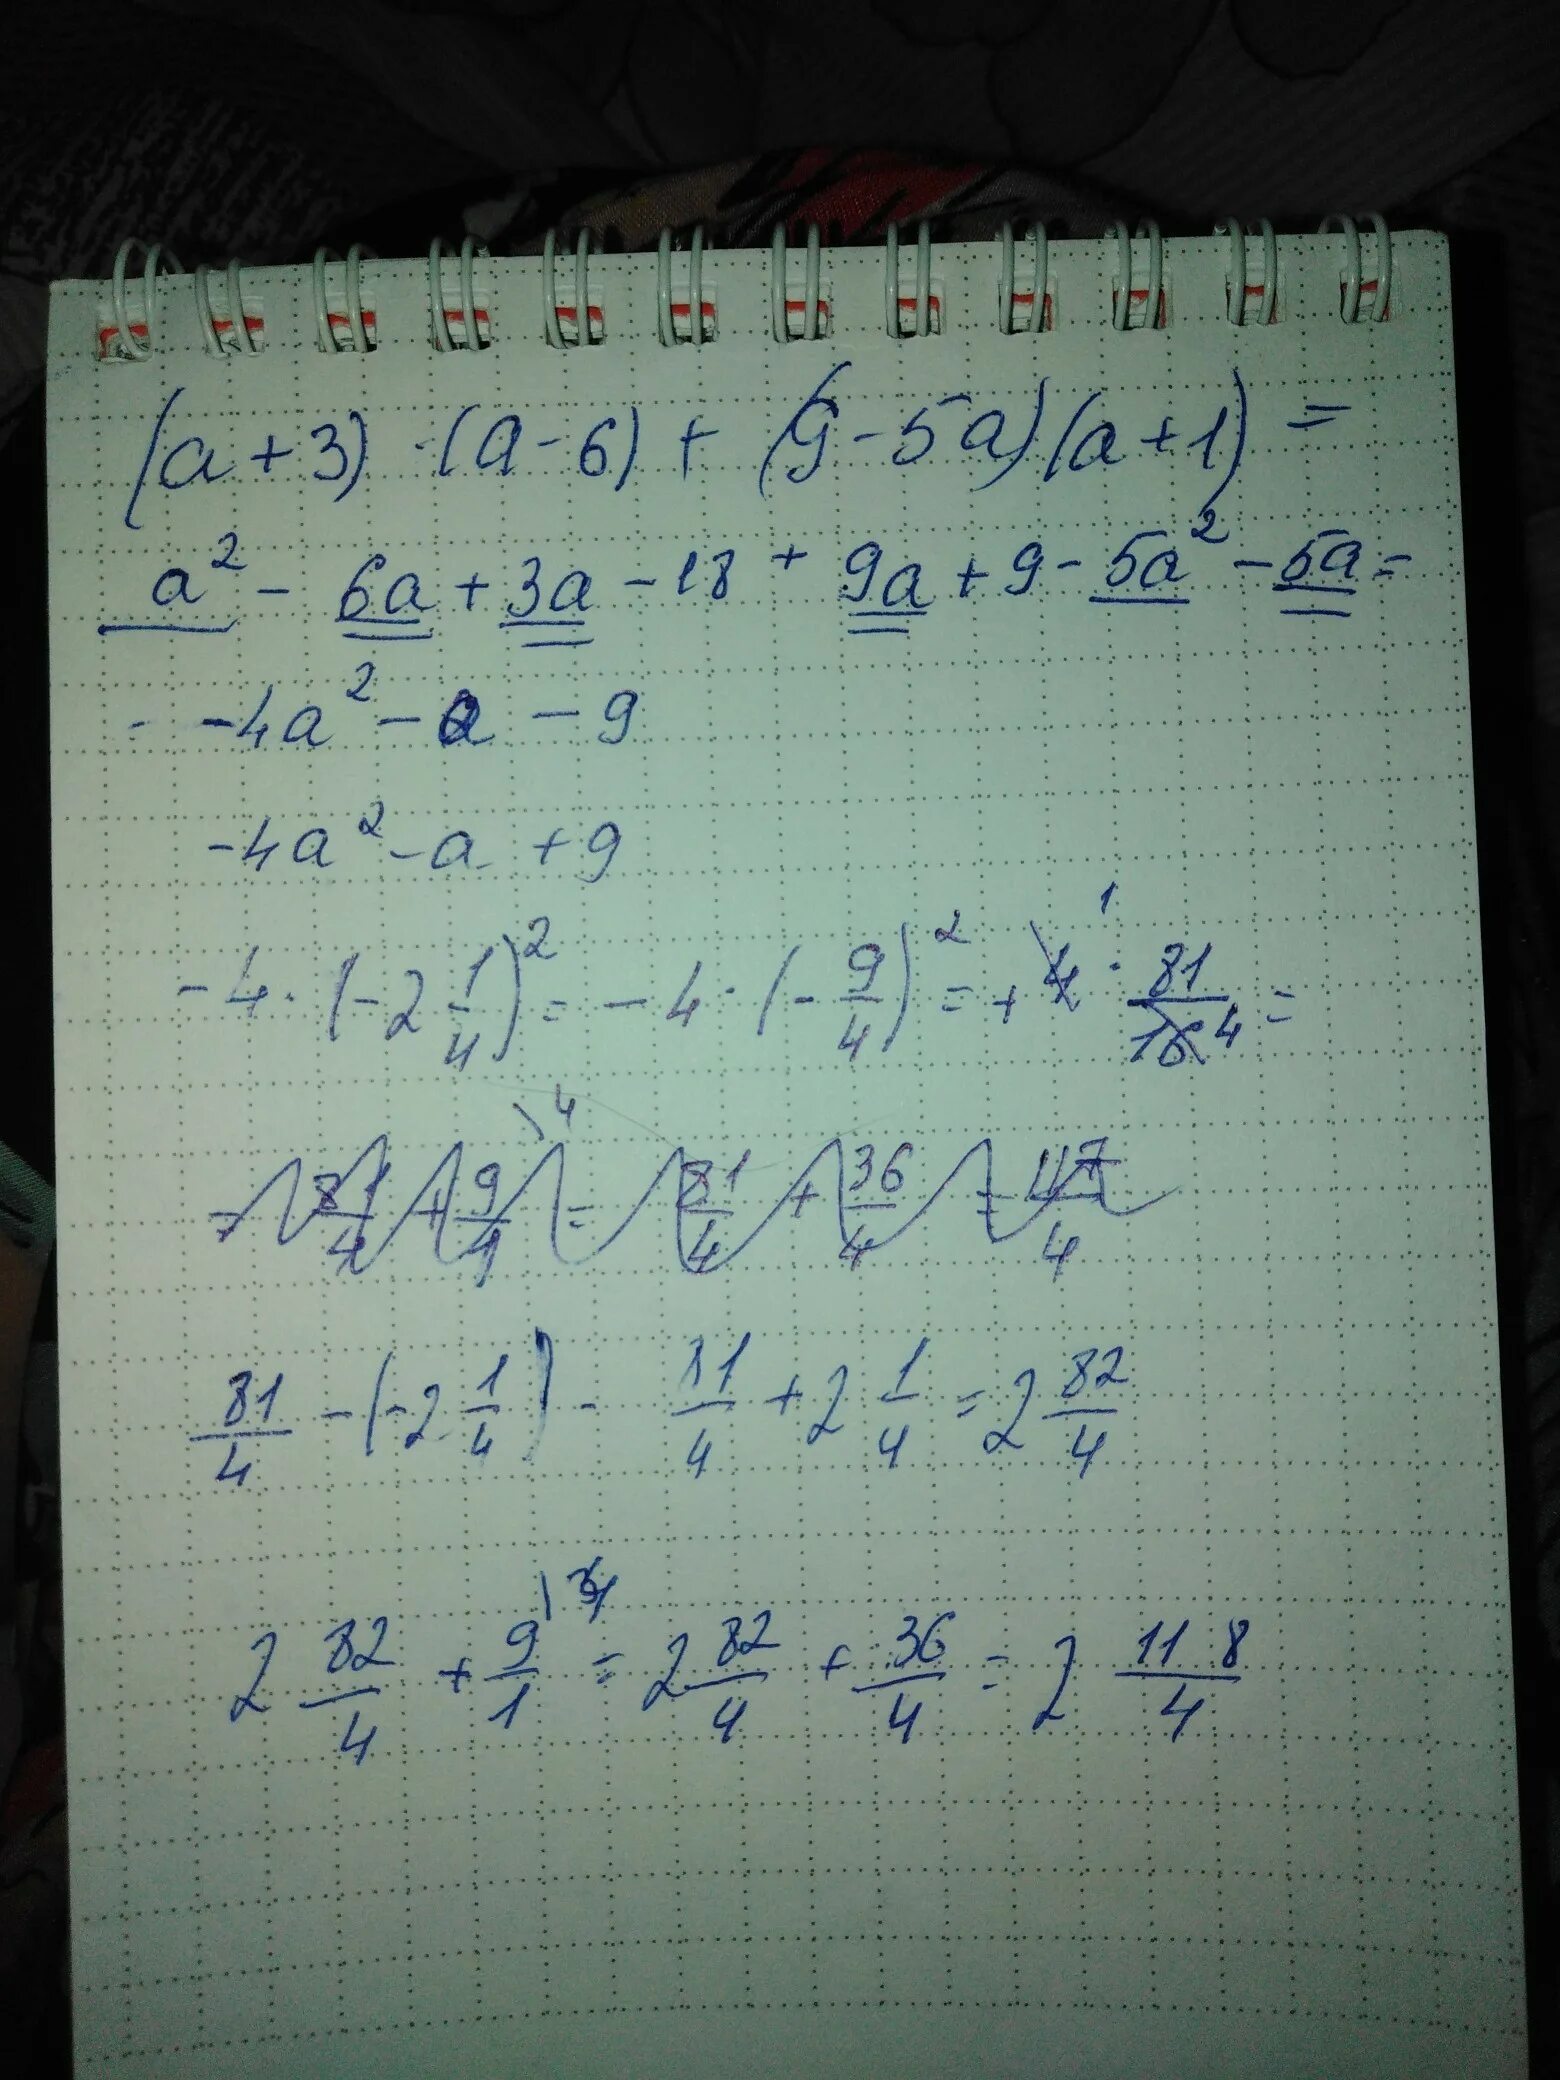 (a + 3) · (a - 6) + (9 - 5a)(a + 1) =
a² - 6a + 3a - 18 + 9a + 9 - 5a² - 5a =
- -4a² - a - 9
-4a² - a + 9
-4 · (-2 1/4)² = -4 · (-9/4)² = + 4 1 · 81/16 4 =
= 81/4 + 9/1 \4 = 81/4 + 36/4 = 117/4
81/4 - (-2 1/4) - 81/4 + 2 1/4 = 2 82/4
2 82/4 + 9/1 = 2 82/4 + 36/4 = 2 118/4